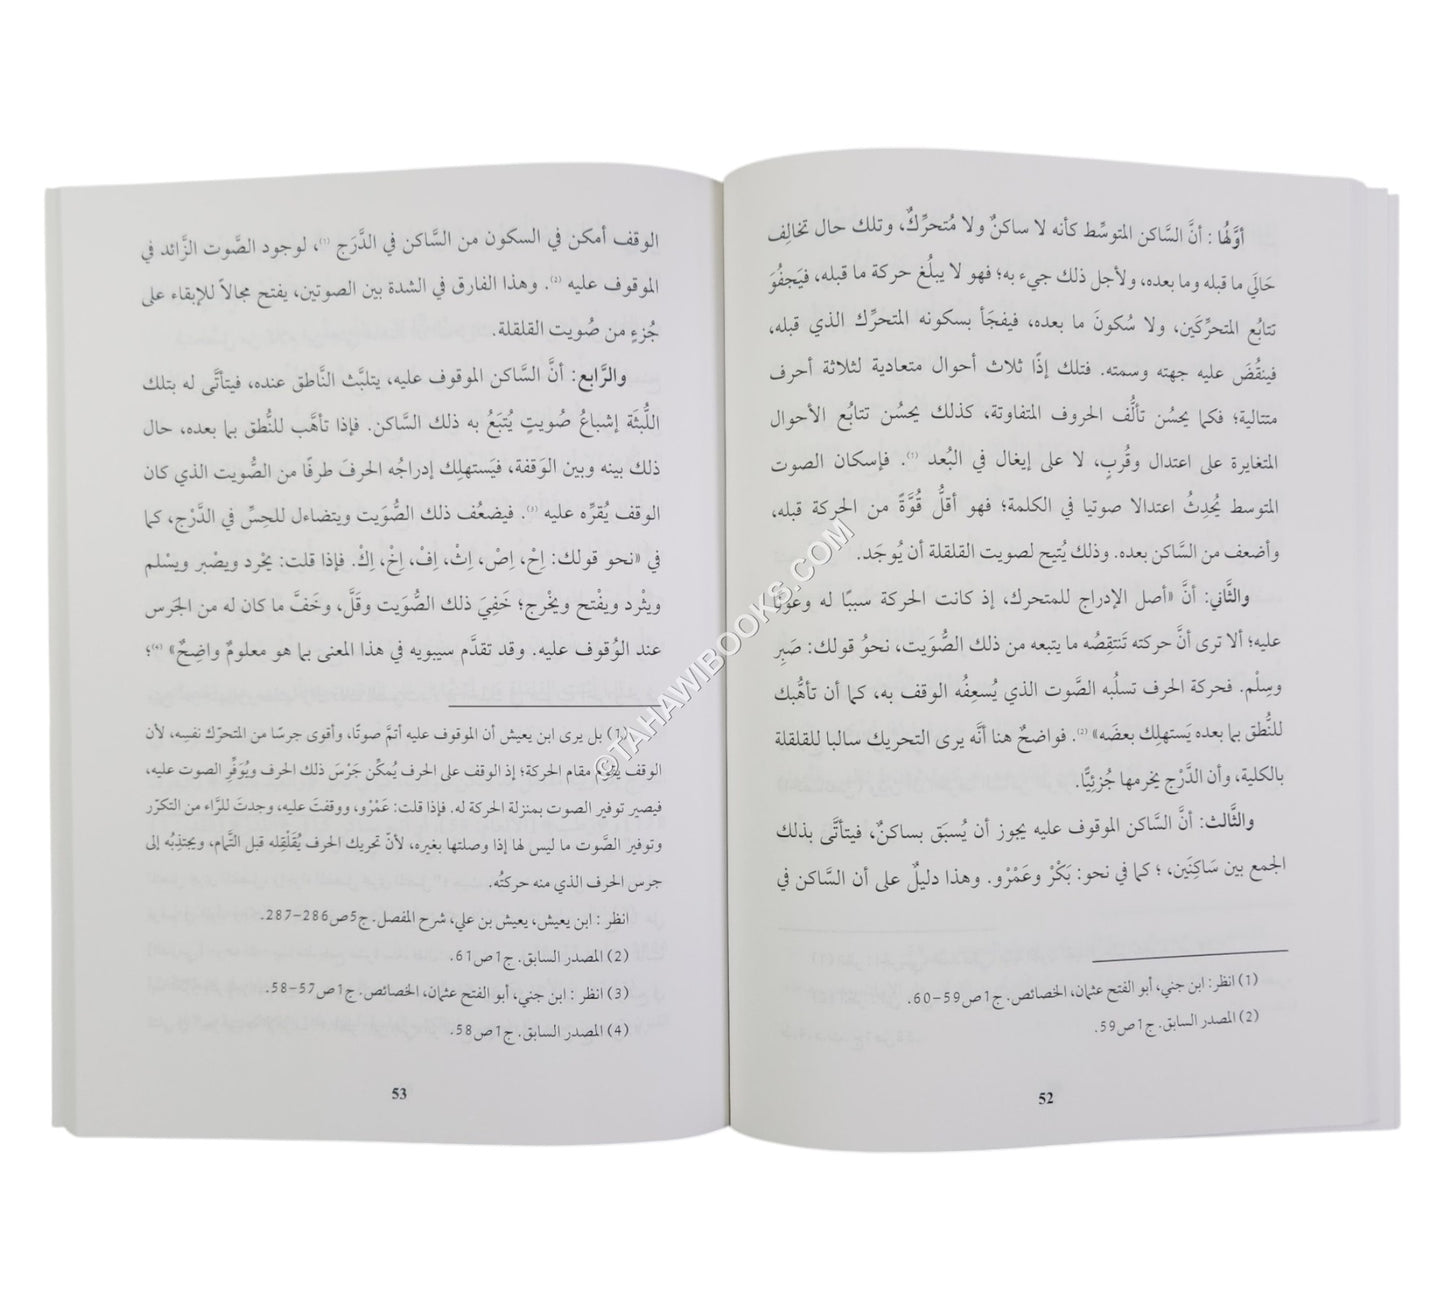 أوَّلهُا : أنَّ السَّاكن المتوسِّط كأنه لا ساكنٌ ولا مُتحرِّكٌ، وتلك حال تخالِف
حَالَي ما قبله وما بعده، ولأجل ذلك جيء به؛ فهو لا يبلُغ حركة ما قبله، فيَجفُوَ
تتابُع المتحرِّكَين، ولا سُكونَ ما بعده، فيفجَأ بسكونه المتحرِّك الذي قبله،
فينقُضَ عليه جهته وسمته. فتلك إذًا ثلاث أحوال متعادية لثلاثة أحرف
متتالية؛ فكما يحسُن تألُّف الحروف المتفاوتة، كذلك يحسُن تتابُع الأحوال
المتغايرة على اعتدال وقُربٍ، لا على إيغال في البُعد (1). فإسكان الصوت
المتوسط يُحدِثُ اعتدالا صوتيا في الكلمة؛ فهو أقلُّ قُوَّةً من الحركة قبله،
وأضعف من السَّاكن بعده. وذلك يُتيح لصويت القلقلة أن يُوجَد.
والثَّاني: أنَّ «أصل الإدراج للمتحرك، إذ كانت الحركة سببًا له وعونًا
عليه؛ ألا ترى أنَّ حركته تَنتقِصُه ما يتبعه من ذلك الصُّوَيت، نحوُ قولك: صَبِر
وسِلْم. فحركة الحرف تسلُبه الصَّوت الذي يُسعِفُه الوقف به، كما أن تأهُّبك
للنُّطق بما بعده يَستهلِك بعضَه» (2). فواضحٌ هنا أنَّه يرى التحريك سالبا للقلقلة
بالكلية، وأن الدَّرْج يخرمها جُزئِيًّا.
والثَّالث: أنَّ السَّاكن الموقوف عليه يجوز أن يُسبَق بساكنٌ، فيتأتَّى بذلك
الجمع بين سَاكِنَين، ؛ كما في نحو: بَكْرْ وعَمْرْو. وهذا دليلٌ على أن السَّاكن في
(1) انظر: ابن جني، أبو الفتح عثمان، الخصائص. ج1ص59-60.
(2) المصدر السابق. ج1ص59.
52
الوقف أمكن في السكون من السَّاكن في الدَّرَج (1)، لوجود الصَّوت الزَّائد في
الموقوف عليه (2). وهذا الفارق في الشدة بين الصوتين، يفتح مجالاً للإبقاء على
جُزءٍ من صُويت القلقلة.
والرَّابع: أنَّ السَّاكن الموقوف عليه، يتلبَّث النَّاطق عنده، فيتأتَّى له بتلك
اللُّبثَة إشباعُ صُويتٍ يُتبَعُ به ذلك السَّاكن. فإذا تأهَّب للنُّطق بما بعده، حال
ذلك بينه وبين الوَقفة، فيَستهلِك إدراجُه الحرفَ طرفًا من الصُّويت الذي كان
الوقف يُقرِّه عليه (3). فيضعُف ذلك الصُّوَيت ويتضاءل للحِسِّ في الدَّرْج، كما
في «نحو قولك: اِحْ، اِصْ، اِثْ، اِفْ، اِخْ، اِكْ. فإذا قلت: يحْرد ويصْبر ويسْلم
ويثْرد ويفْتح ويخْرج؛ خَفِيَ ذلك الصُّوَيت وقَلَّ، وخَفَّ ما كان له من الجَرس
عند الوُقوف عليه. وقد تقدَّم سيبويه في هذا المعنى بما هو معلومٌ واضِحٌ» (4)؛
(1) بل يرى ابن يعيش أن الموقوف عليه أتمَّ صوتًا، وأقوى جرسًا من المتحرّك نفسِه، لأن
الوقف يقُوم مقام الحركة؛ إذ الوقف على الحرف يُمكِّن جَرْسَ ذلك الحرف ويُوَفِّر الصوت عليه،
فيصير توفير الصوت بمنزلة الحركة له. فإذا قلت: عَمْرْو، ووقفتَ عليه، وجدتَ للرَّاء من التكرّر
وتوفير الصَّوت ما ليس لها إذا وصلتها بغيره، لأنّ تحريك الحرف يُقَلْقِله قبل التَّمام، ويجتذِبُه إلى
جرس الحرف الذي منه حركتُه.
انظر : ابن يعيش، يعيش بن علي، شرح المفصل. ج5ص286-287.
(2) المصدر السابق. ج1ص61.
(3) انظر : ابن جني، أبو الفتح عثمان، الخصائص. ج1ص57-58.
(4) المصدر السابق. ج1ص58.
53
©TAHAWIBOOKS.COM